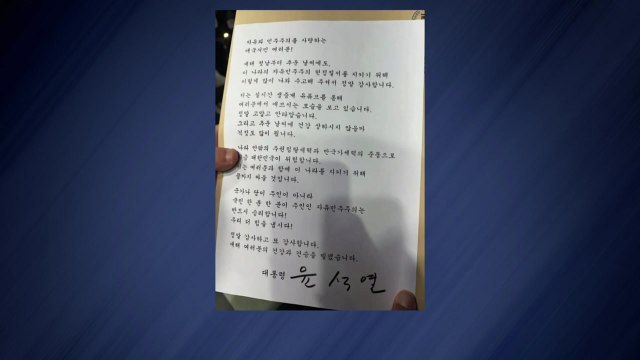 자유와 민주주의를 사랑하는
애국시민 여러분!
새해 첫날부터 추운 날씨에도,
이 나라의 자유민주주의 헌정질서를 지키기 위해
이렇게 많이 나와 수고해 주셔서 정말 감사합니다.
저는 실시간 생중계 유튜브를 통해
여러분께서 애쓰시는 모습을 보고 있습니다.
정말 고맙고 안타깝습니다.
그리고 추운 날씨에 건강 상하시지 않을까
걱정도 많이 됩니다.
나라 안팎의 주권침탈세력과 반국가세력의 준동으로
대한민국이 위험합니다.
여러분과 함께 이 나라를 지키기 위해
끝까지 싸울 것입니다.
국가나 당이 주인이 아니라
국민 한 분 한 분이 주인인 자유민주주의는
반드시 승리합니다!
우리 더 힘을 냅시다!
정말 감사하고 또 감사합니다.
새해 여러분의 건강과 건승을 빌겠습니다.
대통령 윤석열